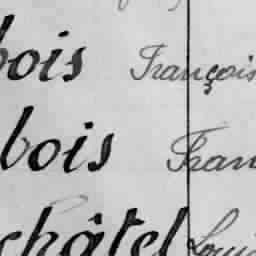 bois François
bois Fran
châtel Louis